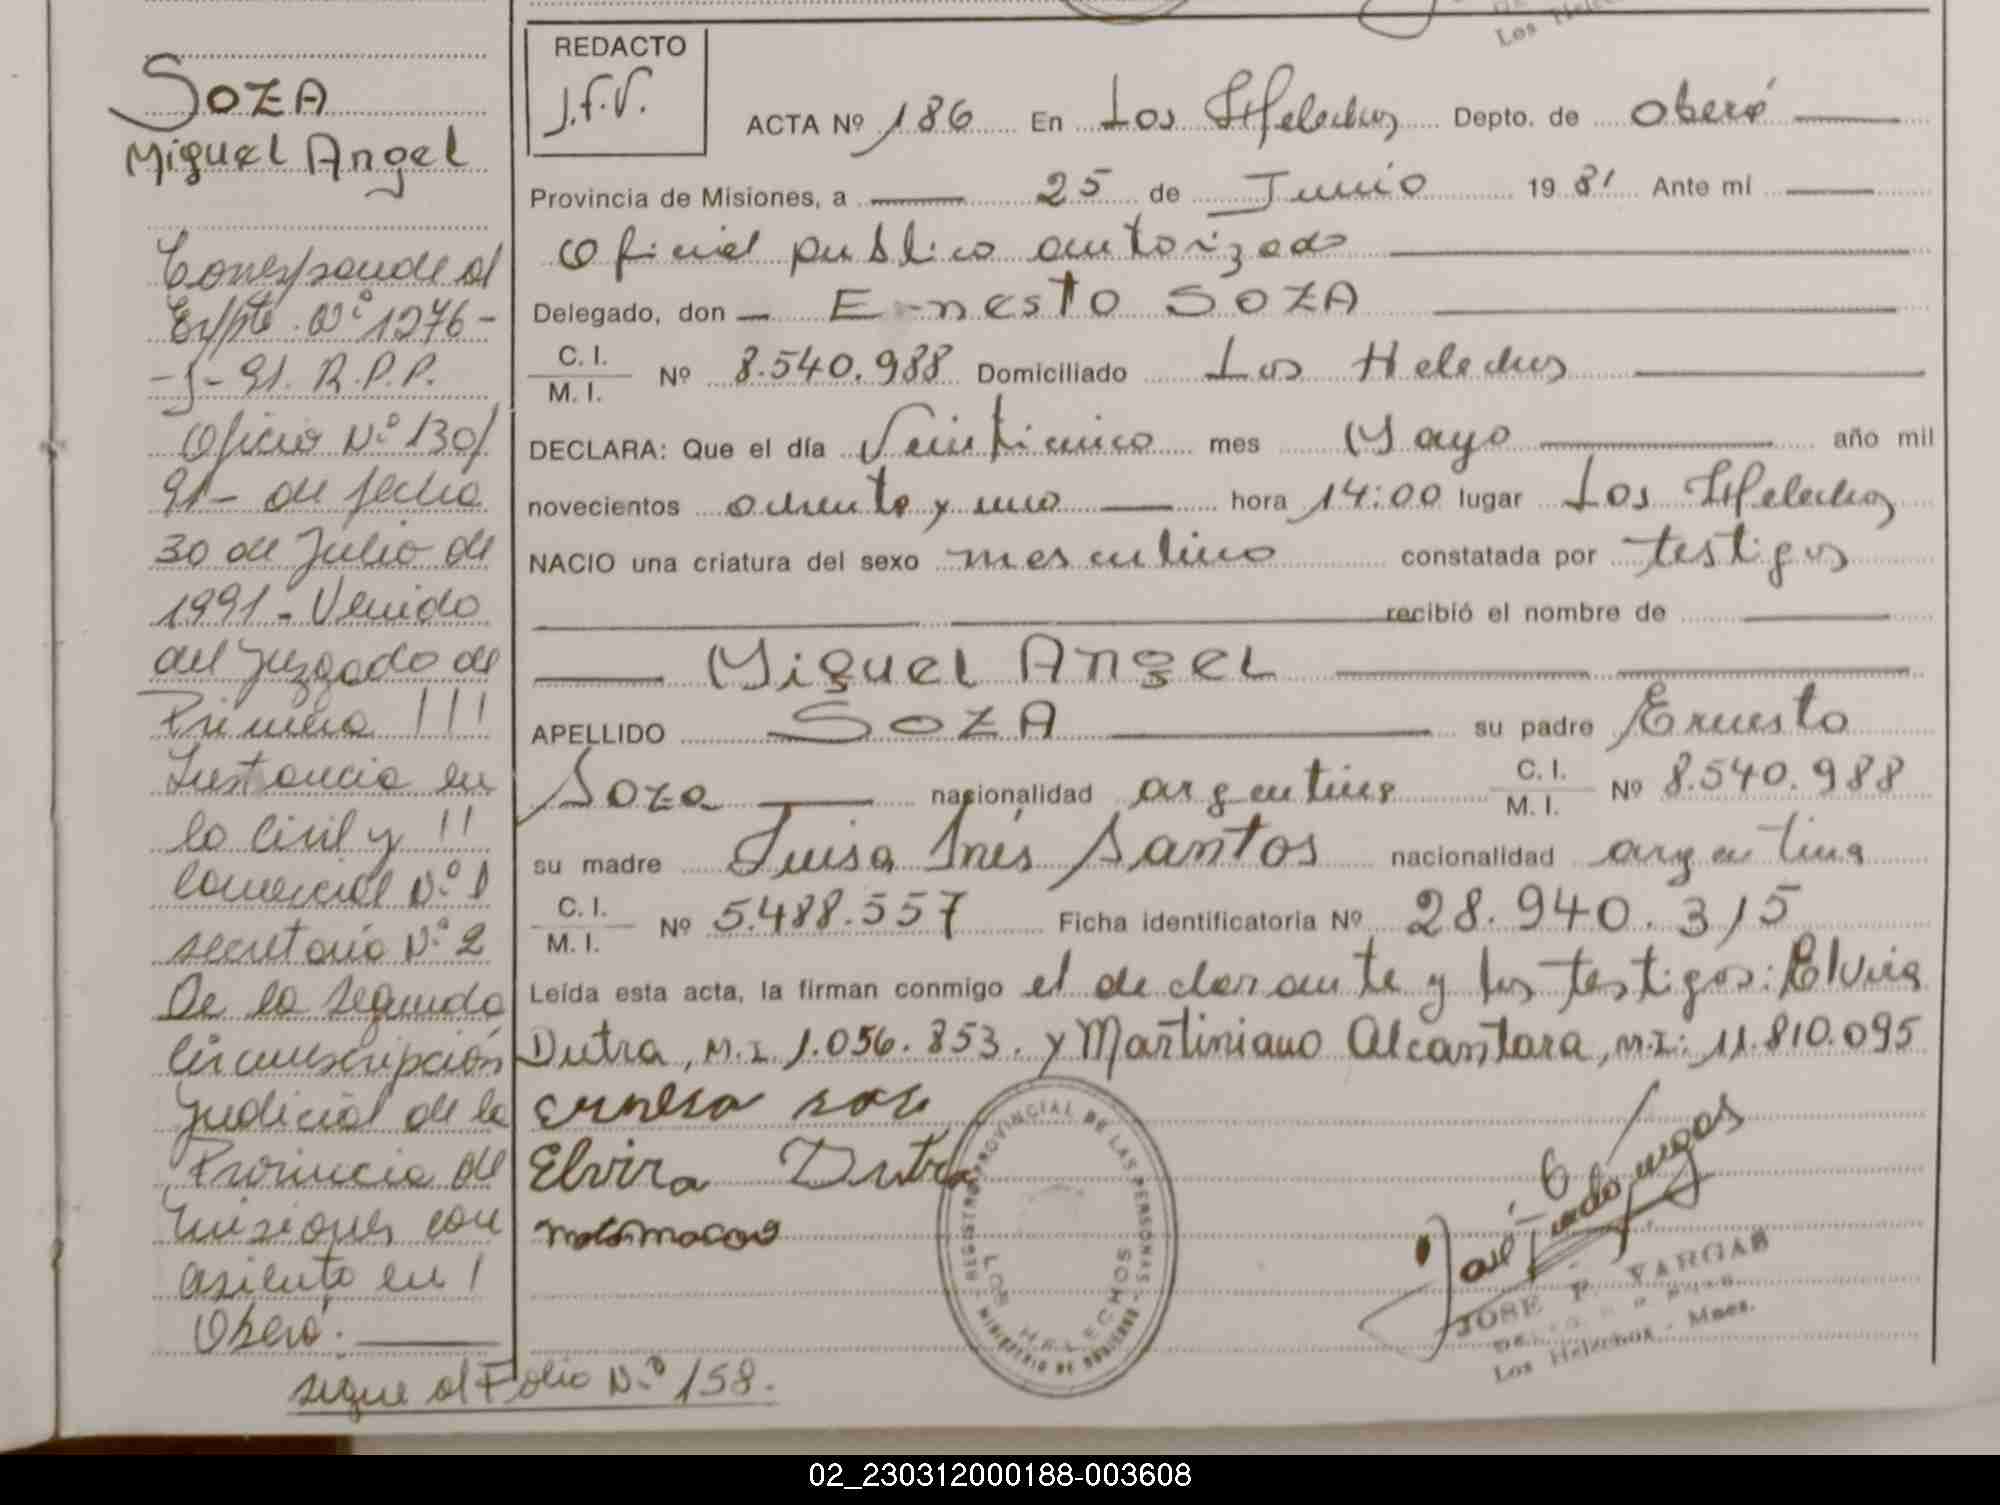 SOZA
Miguel Angel
Corresponde al
Expte. Nº 1276-
-J-91. R.P.P.
Oficio Nº 130/
91- de fecha
30 de Julio de
1991- Venido
del Juzgado de
Primera !!!
Instancia en
lo Civil y !!
Comercial Nº 1
secretaria Nº 2
De la segunda
circunscripción
judicial de la
Provincia de
Misiones con
asiento en !
Oberá.
sigue al Folio Nº 158.
REDACTO
J.F.V.
ACTA Nº 186 En Los Helechos Depto. de Oberá
Provincia de Misiones, a 25 de Junio 1981 Ante mí
Oficial publico autorizado
Delegado, don Ernesto SOZA
C. I.
M. I. Nº 8.540.988 Domiciliado Los Helechos
DECLARA: Que el día Veinticinco mes Mayo año mil
novecientos ochenta y uno hora 14:00 lugar Los Helechos
NACIO una criatura del sexo masculino constatada por testigos
recibió el nombre de
Miguel Angel
APELLIDO SOZA su padre Ernesto
Soza nacionalidad argentino C. I. M. I. Nº 8.540.988
su madre Luisa Inés Santos nacionalidad argentina
C. I.
M. I. Nº 5.488.557 Ficha identificatoria Nº 28.940.315
Leída esta acta, la firman conmigo el declarante y los testigos: Elvira
Dutra, M.I. 1.056.853. y Martiniano Alcantara, M.I: 11.810.095
Elvira Dutra
REGISTRO PROVINCIAL DE LAS PERSONAS
LOS HELECHOS
MINISTERIO DE GOBIERNO
JOSE F. VARGAS
Los Helechos - Mnes.
Los
02_230312000188-003608